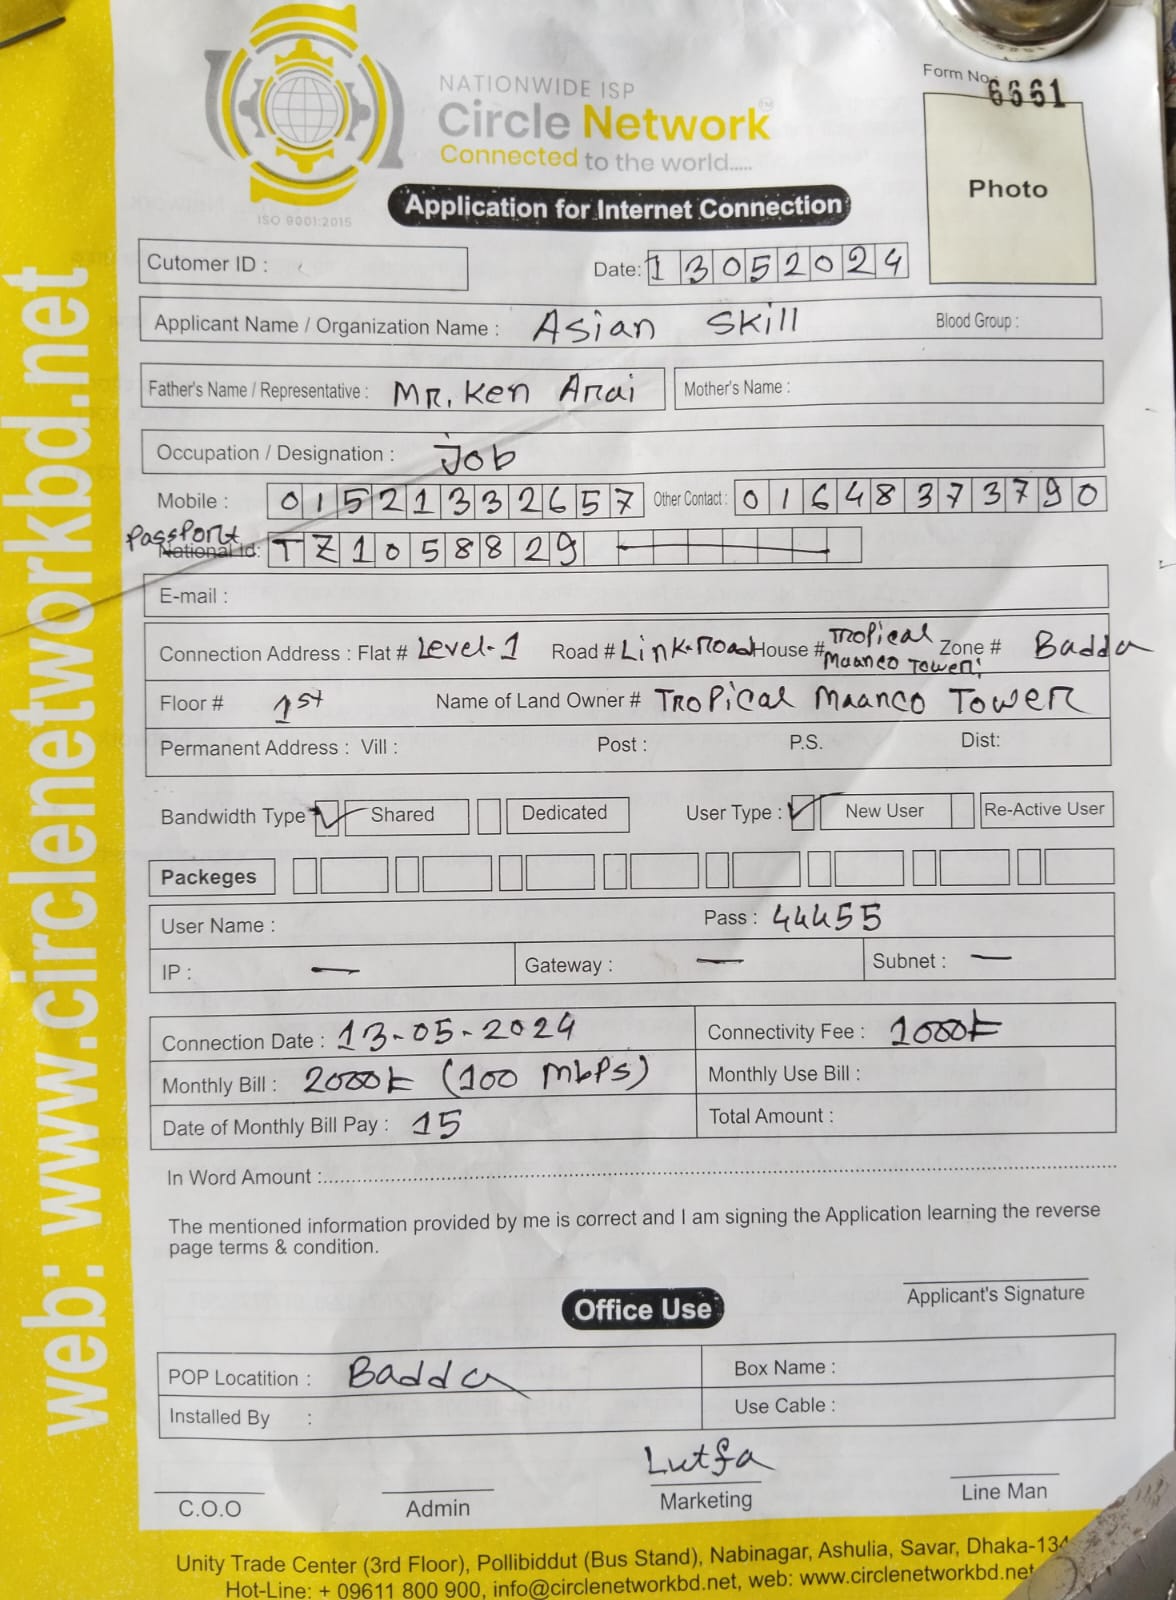 web: www.circlenetworkbd.net
ISO 9001:2015
NATIONWIDE ISP
Circle Network™
Connected to the world.....
Application for Internet Connection
Form No. 6661
Photo
Cutomer ID :
Date: 13052024
Applicant Name / Organization Name : Asian Skill Blood Group :
Father's Name / Representative : MR. Ken Arai Mother's Name :
Occupation / Designation : Job
Mobile : 01521332657 Other Contact : 01648373790
Passport
National Id: TZ1058829
E-mail :
Connection Address : Flat # Level-1 Road # Link-Road House # Tropical Maanco Tower Zone # Badda
Floor # 1st Name of Land Owner # Tropical Maanco Tower
Permanent Address : Vill : Post : P.S. Dist:
Bandwidth Type Shared Dedicated User Type : New User Re-Active User
Packeges
User Name : Pass : 44455
IP : — Gateway : — Subnet : —
Connection Date : 13-05-2024 Connectivity Fee : 1000t
Monthly Bill : 2000t (100 mbps) Monthly Use Bill :
Date of Monthly Bill Pay : 15 Total Amount :
In Word Amount :
The mentioned information provided by me is correct and I am signing the Application learning the reverse
page terms & condition.
Applicant's Signature
Office Use
POP Locatition : Badda Box Name :
Installed By : Use Cable :
Lutfa
C.O.O Admin Marketing Line Man
Unity Trade Center (3rd Floor), Pollibiddut (Bus Stand), Nabinagar, Ashulia, Savar, Dhaka-134
Hot-Line: + 09611 800 900, info@circlenetworkbd.net, web: www.circlenetworkbd.net